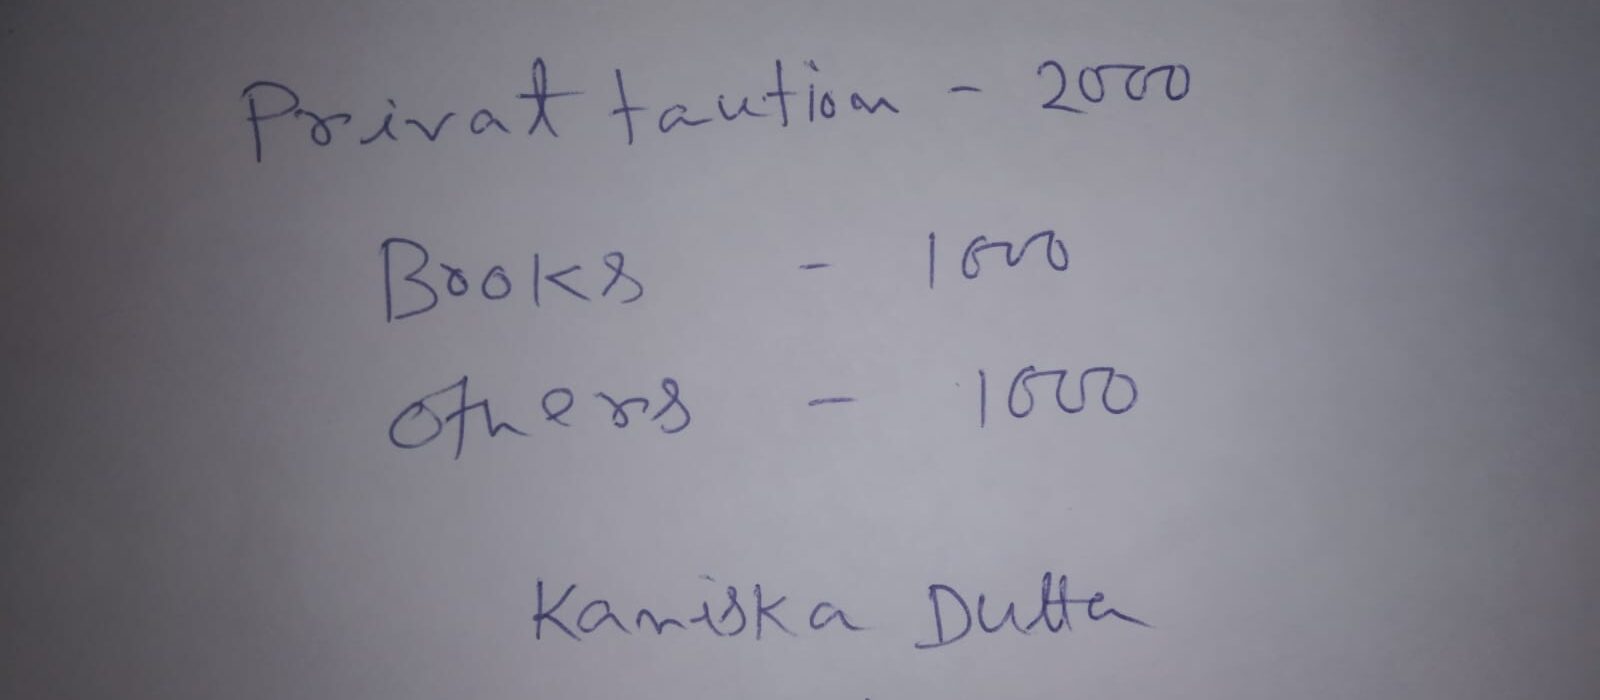 Privat taution - 2000
Books - 1000
Others - 1000
Kaniska Dutta